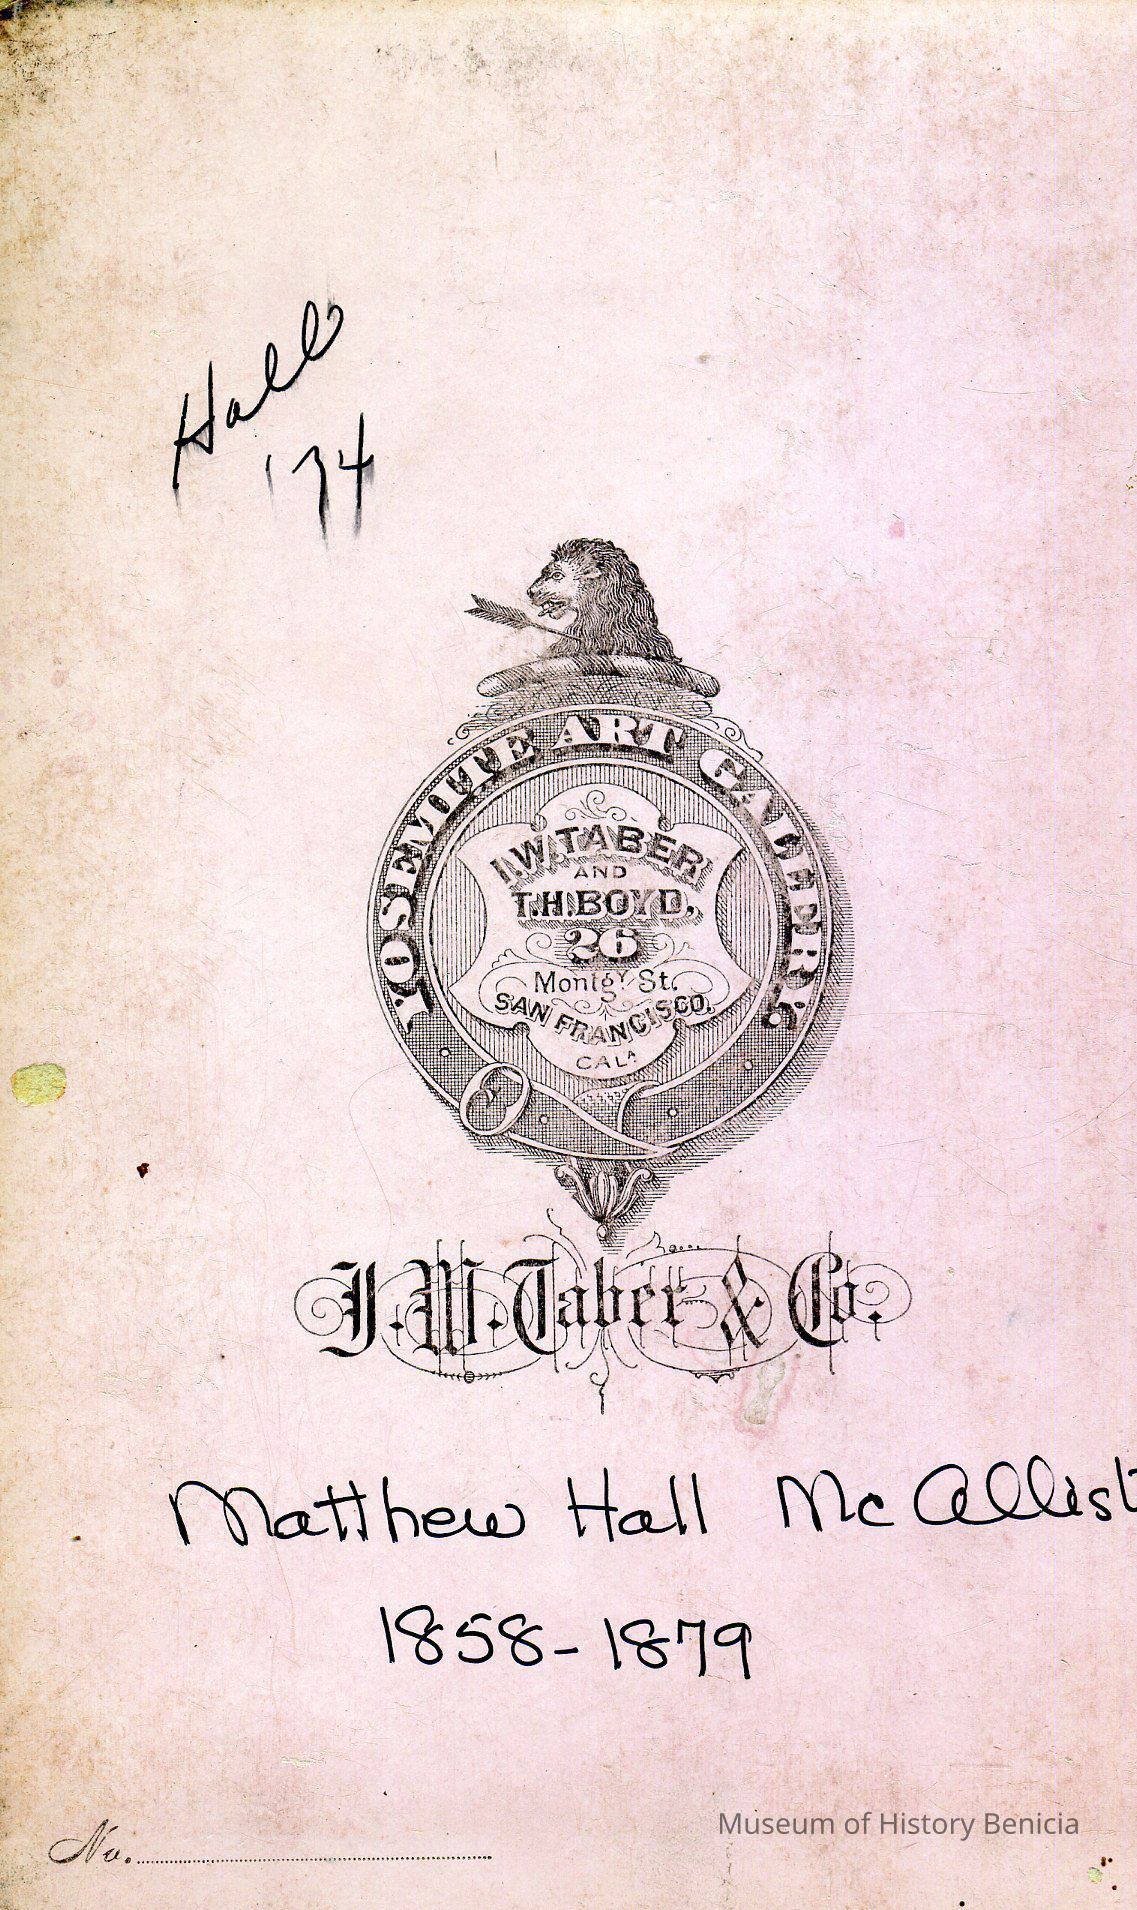 Hall
'74
YOSEMITE ART GALLERY
I.W. TABER
AND
T.H. BOYD,
26
Montgy. St.
SAN FRANCISCO.
CALA
I. W. Taber & Co.
Matthew Hall McAllist
1858-1879
Museum of History Benicia
No.